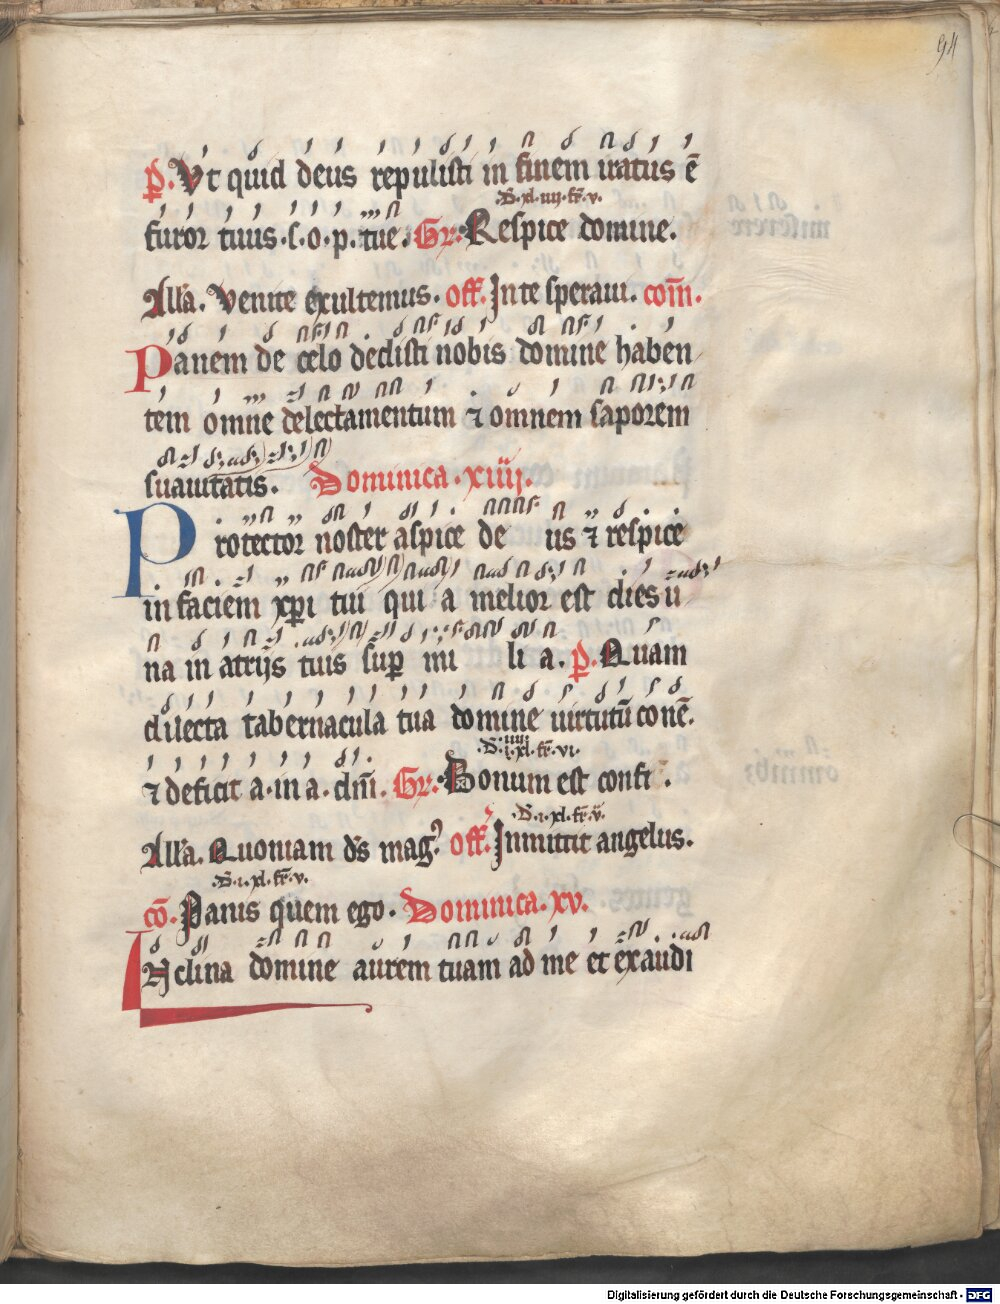 94
p. Ut quid deus repulisti in finem iratus ē
·D·xl·iiij·fr̄·v·
furor tuus·s·o·p·tue. Gr. Respice domine.
All'a. Venite exultemus. off. In te speraui. com̄.
Panem de celo dedisti nobis domine haben
tem omne delectamentum ⁊ omnem saporem
suauitatis. Dominica·xiiij.
Protector noster aspice de us ⁊ respice
in faciem xp̄i tui qui a melior est dies u
na in atrijs tuis sup̄ mi li a. p. Quam
dilecta tabernacula tua domine uirtutū con̄c.
·D·i·xl·fr̄·vi·
⁊ deficit a·in a·dn̄i. Gr. Bonum est confi .
·D·i·xl·fr̄·v̄·
All'a. Quoniam d's mag? off. Inmittit angelus.
·D·i·xl·fr̄·v·
cō. Panis quem ego. Dominica·xv.
Inclina domine aurem tuam ad me et exaudi
Digitalisierung gefördert durch die Deutsche Forschungsgemeinschaft - DFG